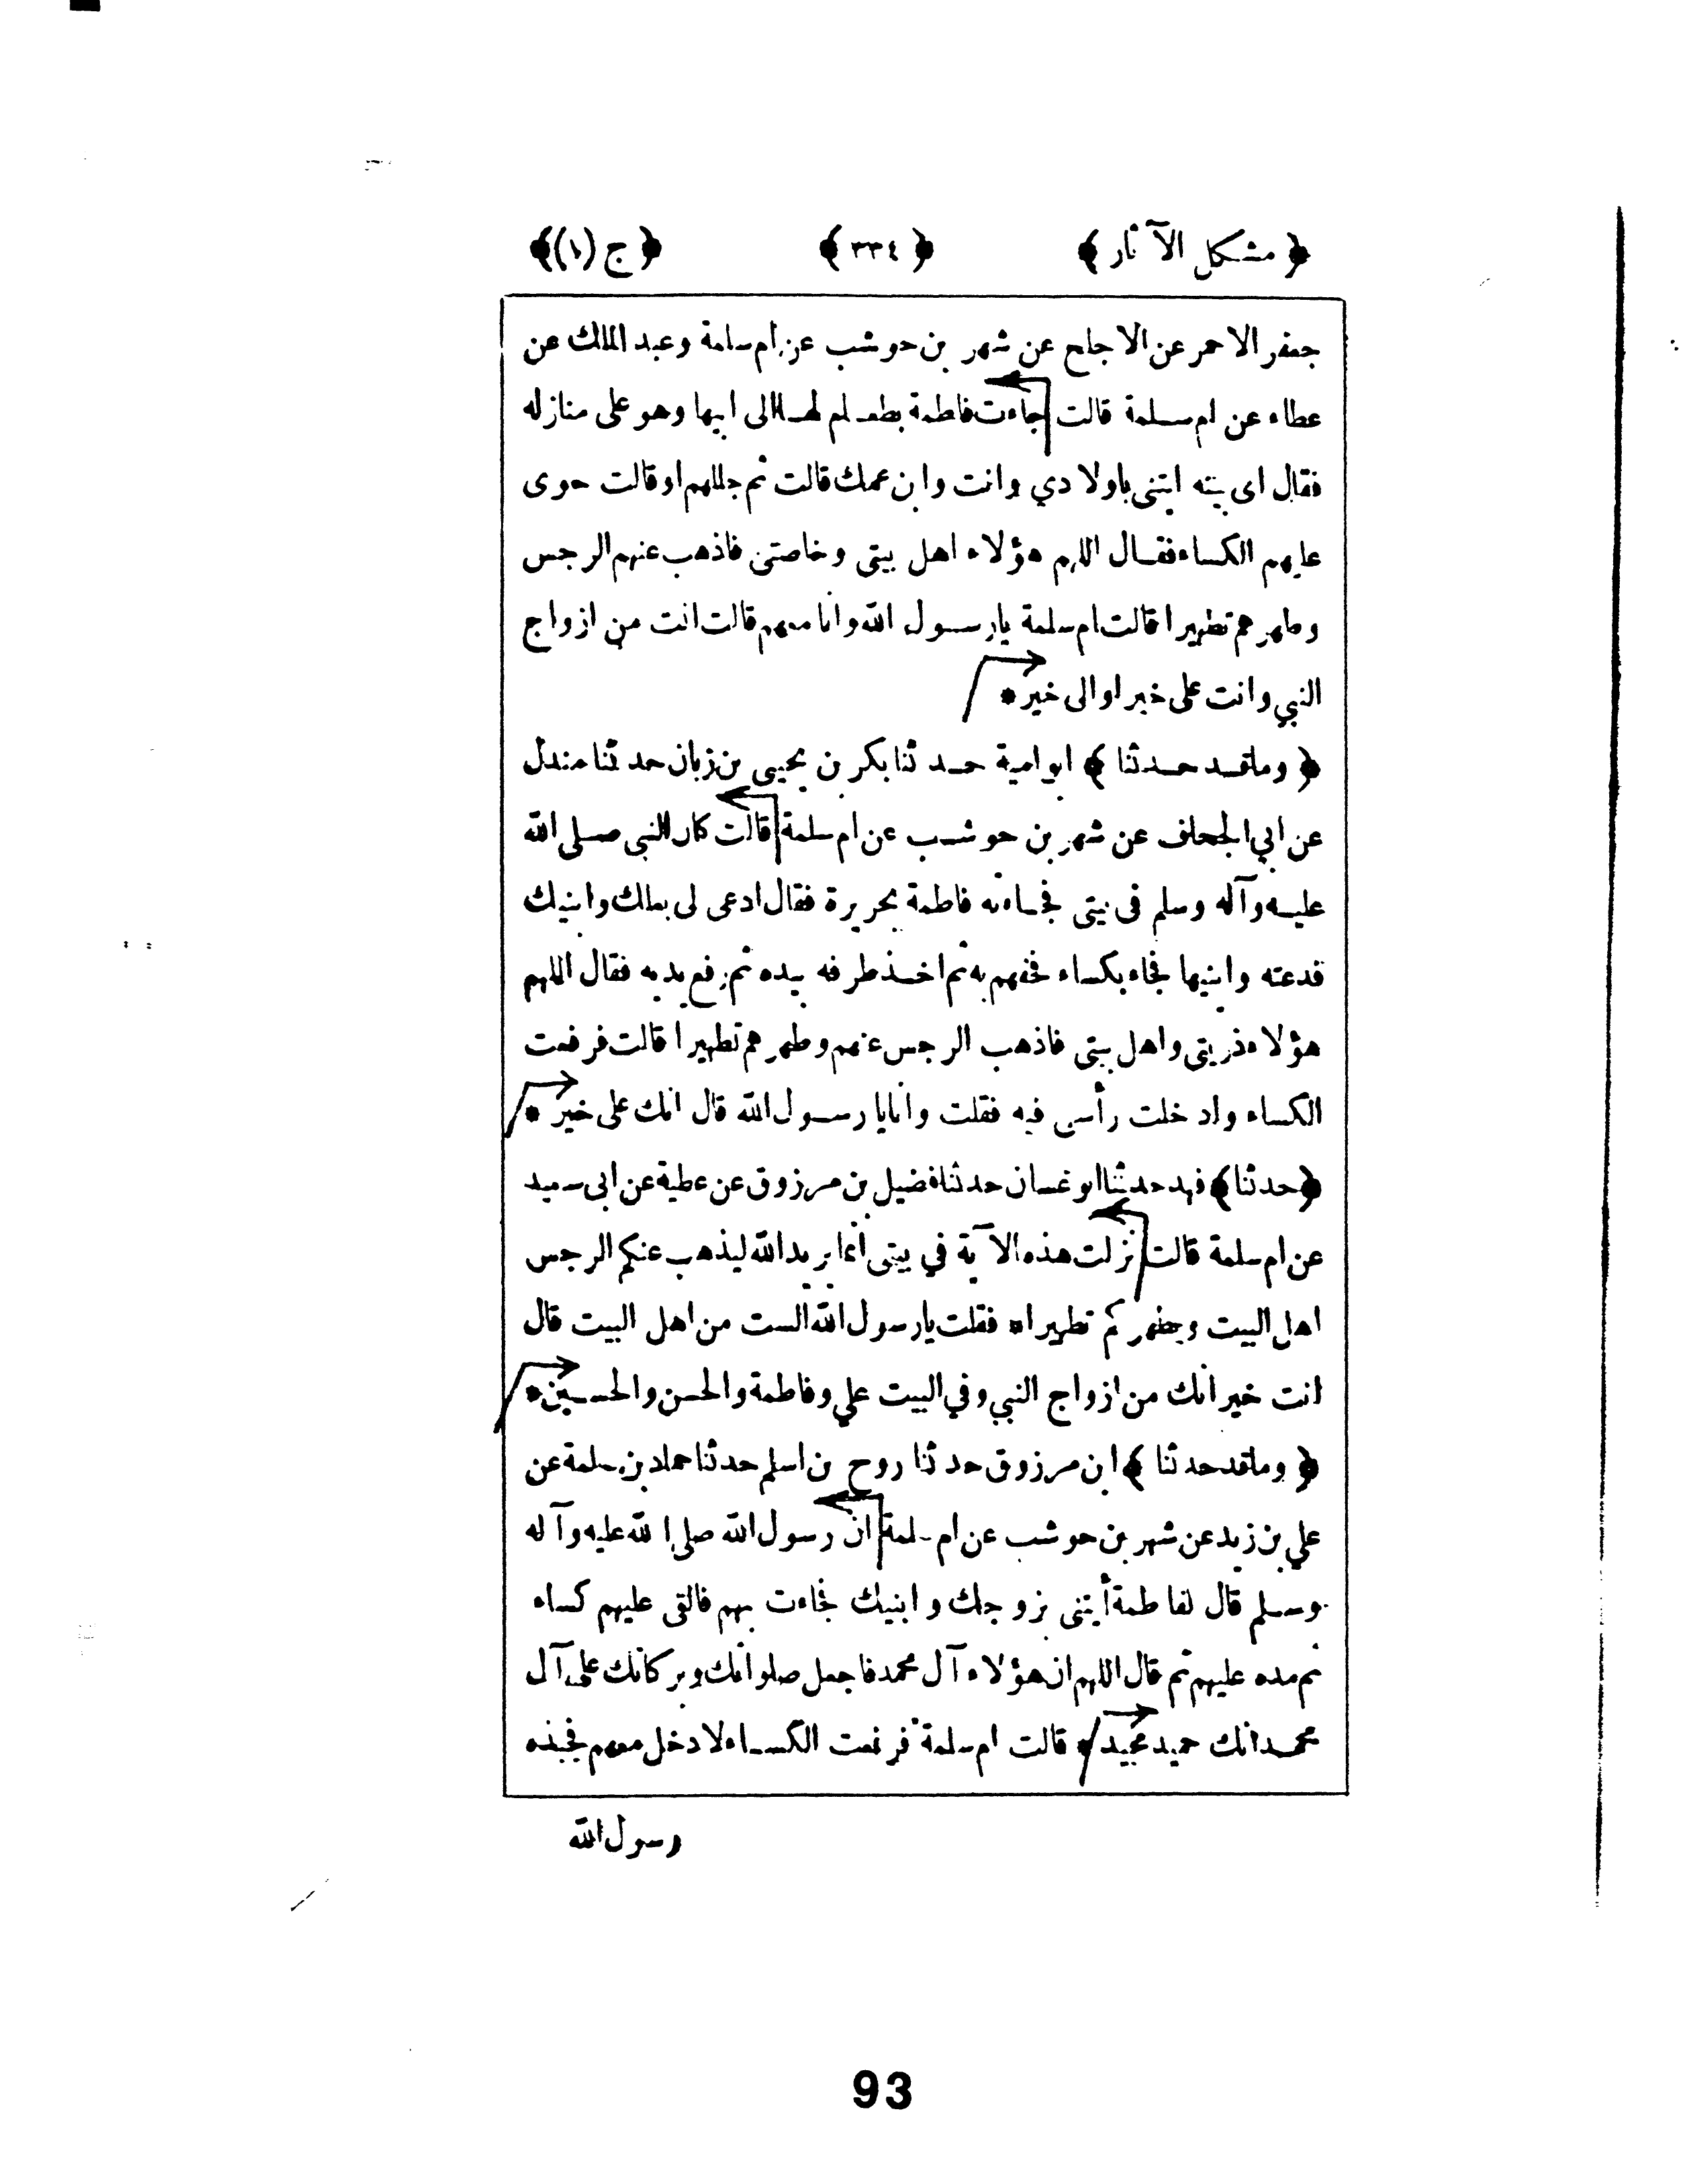 ﴿ مشكل الآثار ﴾ ﴿ ٣٣٤ ﴾ ﴿ ج (١) ﴾
جعفر الاحمر عن الاجلح عن شهر بن حوشب عن ام سلمة وعبد الملك عن
عطاء عن ام سلمة قالت جاءت فاطمة بطعام لها الى ابيها وهو على منازله
فقال اى بنية ايتنى باولادي وانت وابن عمك قالت ثم جللهم او قالت حوى
عليهم الكساء فقال اللهم هؤلاء اهل بيتى وخاصتى فاذهب عنهم الرجس
وطهرهم تطهيرا قالت ام سلمة يارسول الله وانا معهم قالت انت من ازواج
النبي وانت على خير او الى خير *
﴿ وماقد حدثنا ﴾ ابو امية حدثنا بكر بن يحيى بن زبان حدثنا مندل
عن ابي الجحاف عن شهر بن حوشب عن ام سلمة قالت كان النبى صلى الله
عليه وآله وسلم فى بيتى فجاءته فاطمة بحريرة فقال ادعى لى بعلك وابنيك
فدعته وابنيها فجاء بكساء فحفهم به ثم اخذ طرفه بيده ثم رفع يديه فقال اللهم
هؤلاء ذريتى واهل بيتى فاذهب الرجس عنهم وطهرهم تطهيرا قالت فرفعت
الكساء وادخلت رأسى فيه فقلت وانا يا رسول الله قال انك على خير *
﴿ حدثنا ﴾ فهد حدثنا ابو غسان حدثنا فضيل بن مرزوق عن عطية عن ابى سعيد
عن ام سلمة قالت نزلت هذه الآية في بيتى انما يريد الله ليذهب عنكم الرجس
اهل البيت ويطهركم تطهيرا * فقلت يارسول الله الست من اهل البيت قال
انت خير انك من ازواج النبي وفي البيت علي وفاطمة والحسن والحسين *
﴿ وماقد حدثنا ﴾ ابن مرزوق حدثنا روح بن اسلم حدثنا حماد بن سلمة عن
علي بن زيد عن شهر بن حوشب عن ام سلمة ان رسول الله صلى الله عليه وآله
وسلم قال لفاطمة أيتنى بزوجك وابنيك فجاءت بهم فالقى عليهم كساء
ثم مده عليهم ثم قال اللهم ان هؤلاء آل محمد فاجعل صلواتك وبركاتك على آل
محمد انك حميد مجيد * قالت ام سلمة فرفعت الكساء لادخل معهم فجبذه
رسول الله
93